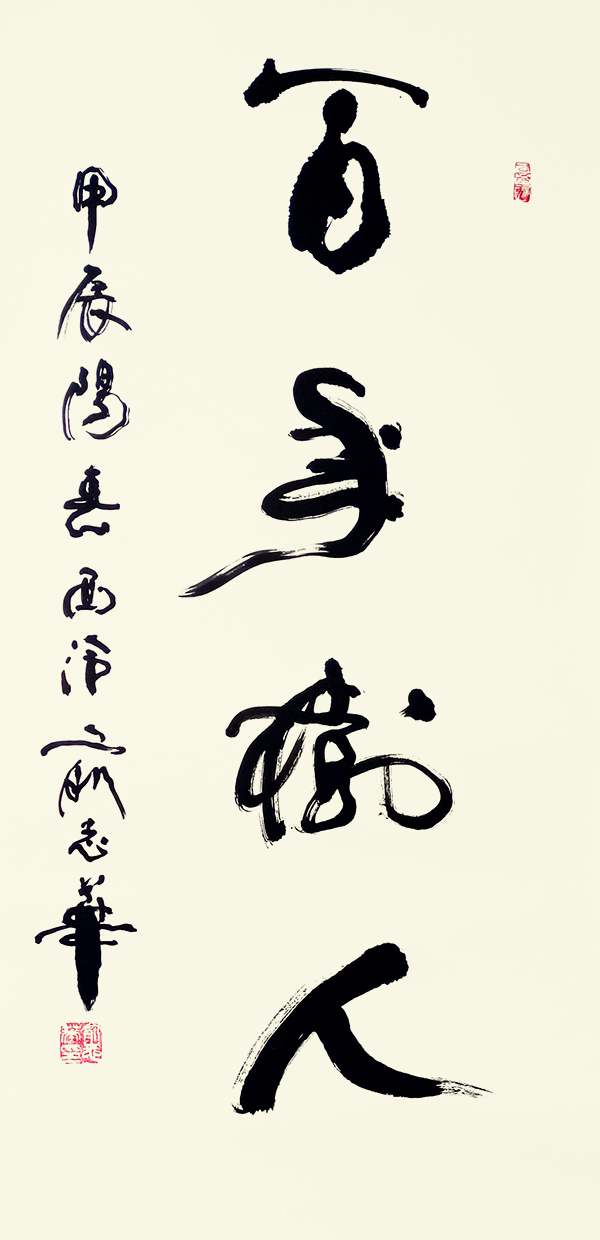 百年樹人
甲辰陽春西泠俞志華